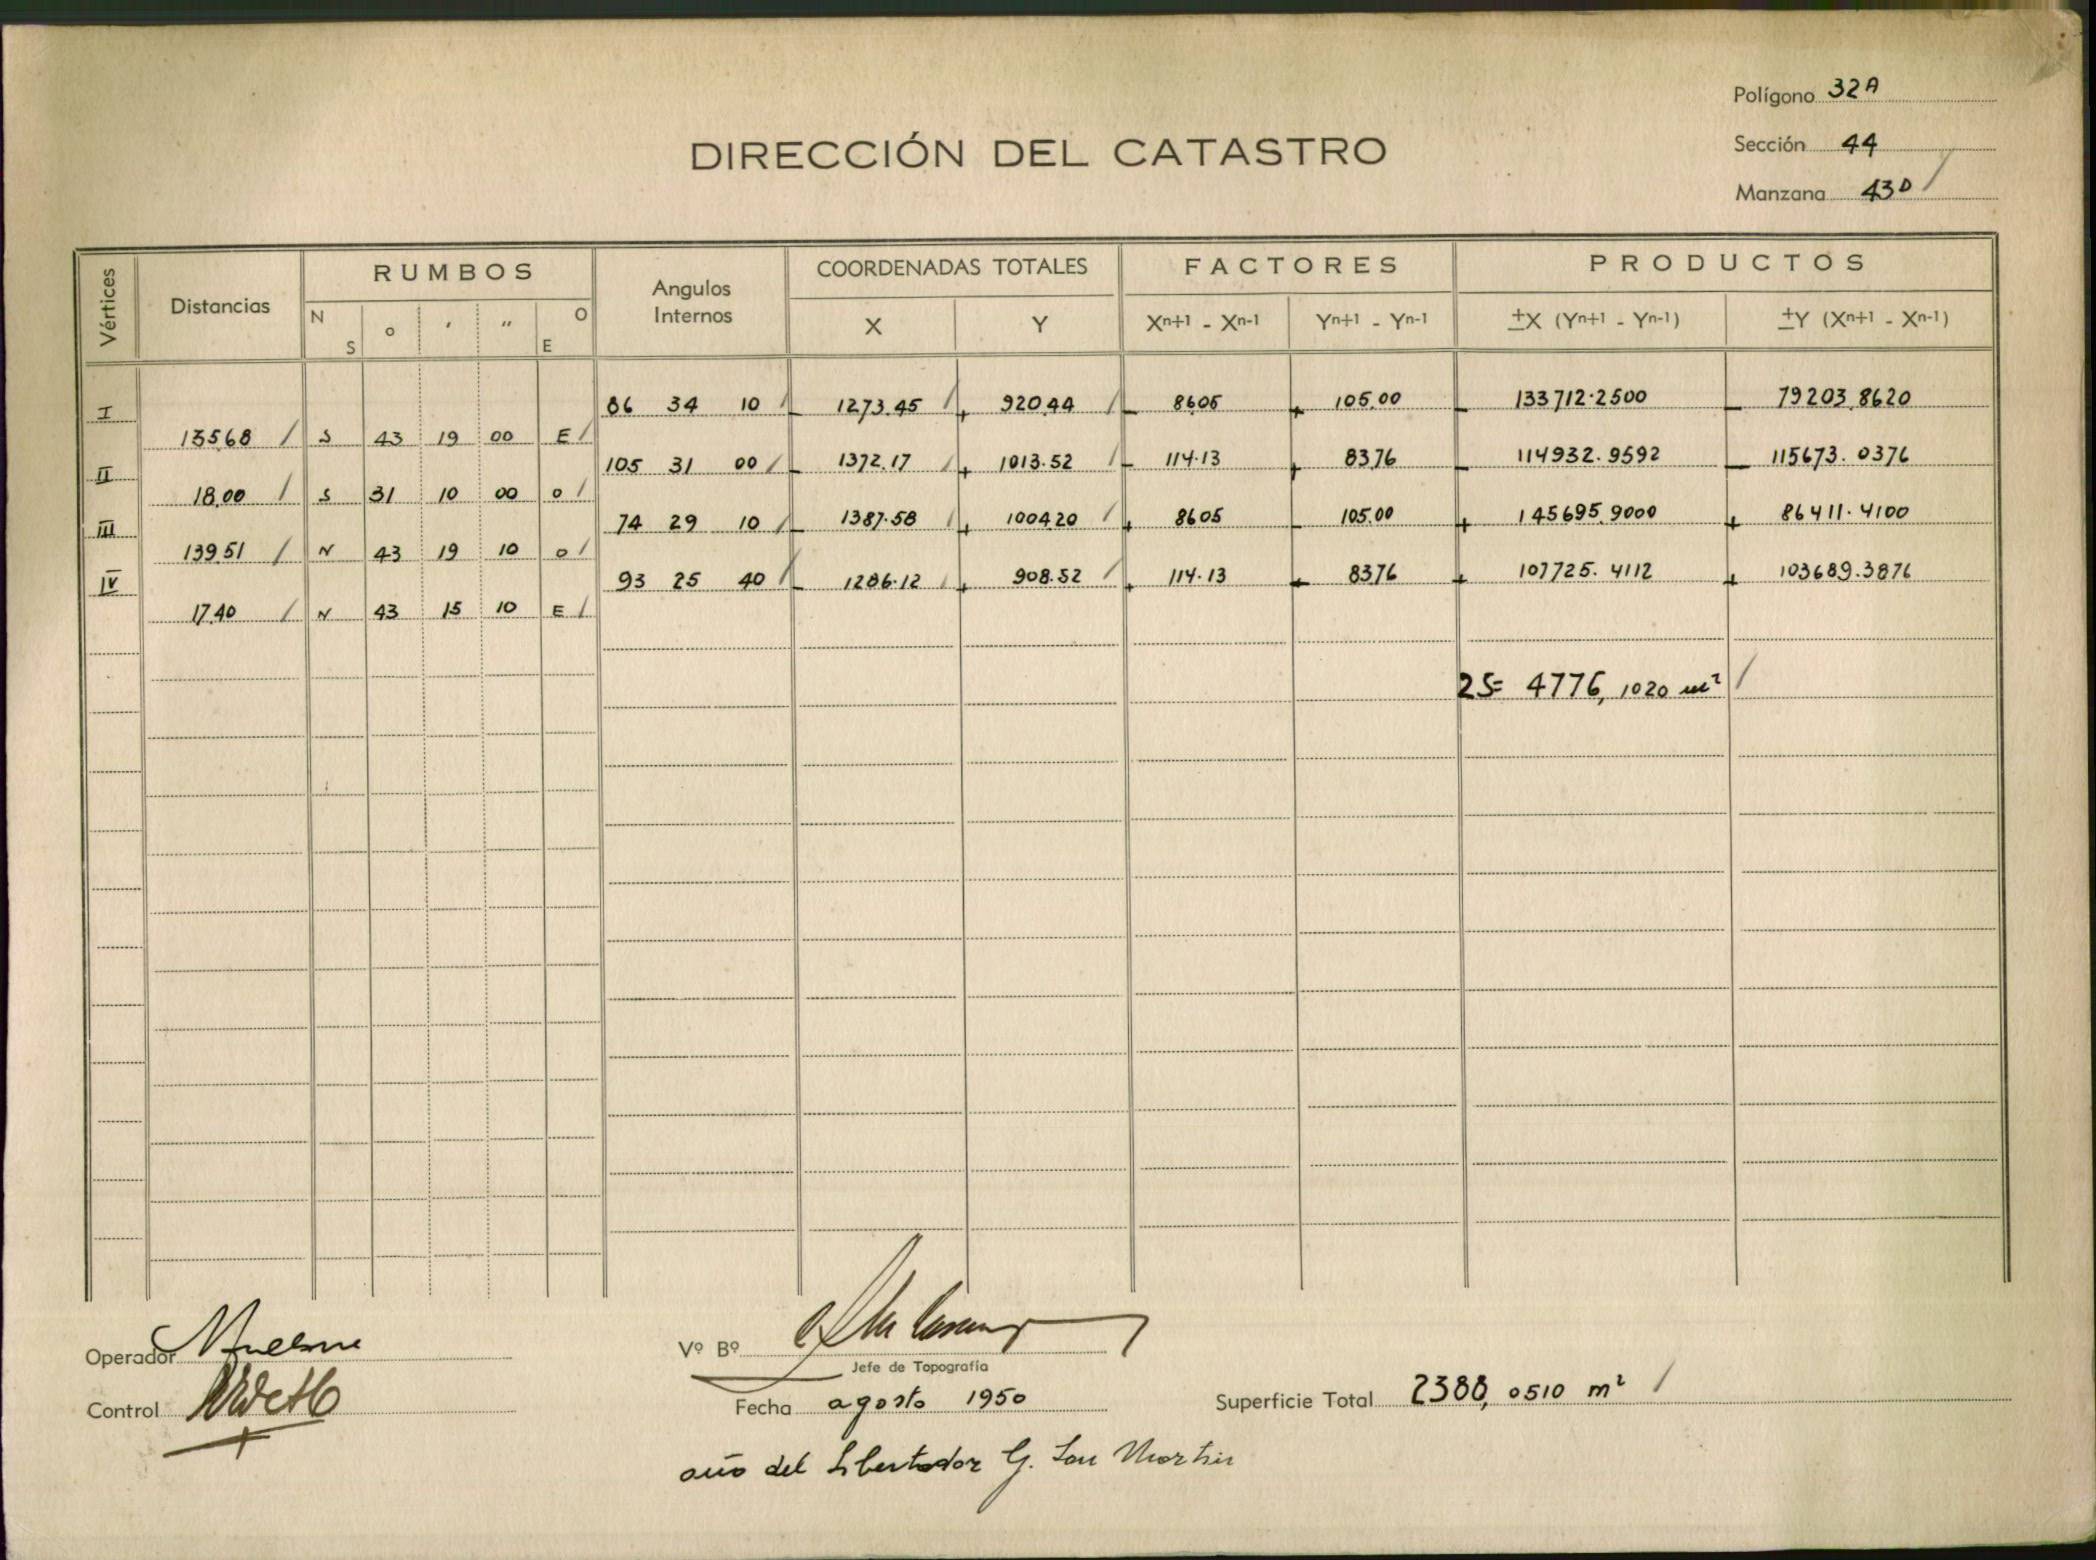 Polígono 32A
Sección 44
Manzana 43D /
DIRECCIÓN DEL CATASTRO
Vértices Distancias RUMBOS Angulos Internos COORDENADAS TOTALES FACTORES PRODUCTOS
N S o ' " O E X Y Xn+1 - Xn-1 Yn+1 - Yn-1 ±X (Yn+1 - Yn-1) ±Y (Xn+1 - Xn-1)
I 86 34 10 / - 1273.45 / + 920.44 / - 86.05 + 105.00 - 133712.2500 - 79203.8620
135.68 / S 43 19 00 E /
II 105 31 00 / - 1372.17 / + 1013.52 / - 114.13 + 83.76 - 114932.9592 - 115673.0376
18.00 / S 31 10 00 O /
III 74 29 10 / - 1387.58 / + 1004.20 / + 86.05 - 105.00 + 145695.9000 + 86411.4100
139.51 / N 43 19 10 O /
IV 93 25 40 / - 1286.12 / + 908.52 / + 114.13 - 83.76 + 107725.4112 + 103689.3876
17.40 / N 43 15 10 E /
2S= 4776,1020 m² /
Operador
Vº Bº
Jefe de Topografía
Control
Fecha agosto 1950
Superficie Total 2388,0510 m² /
año del Libertador G. San Martin